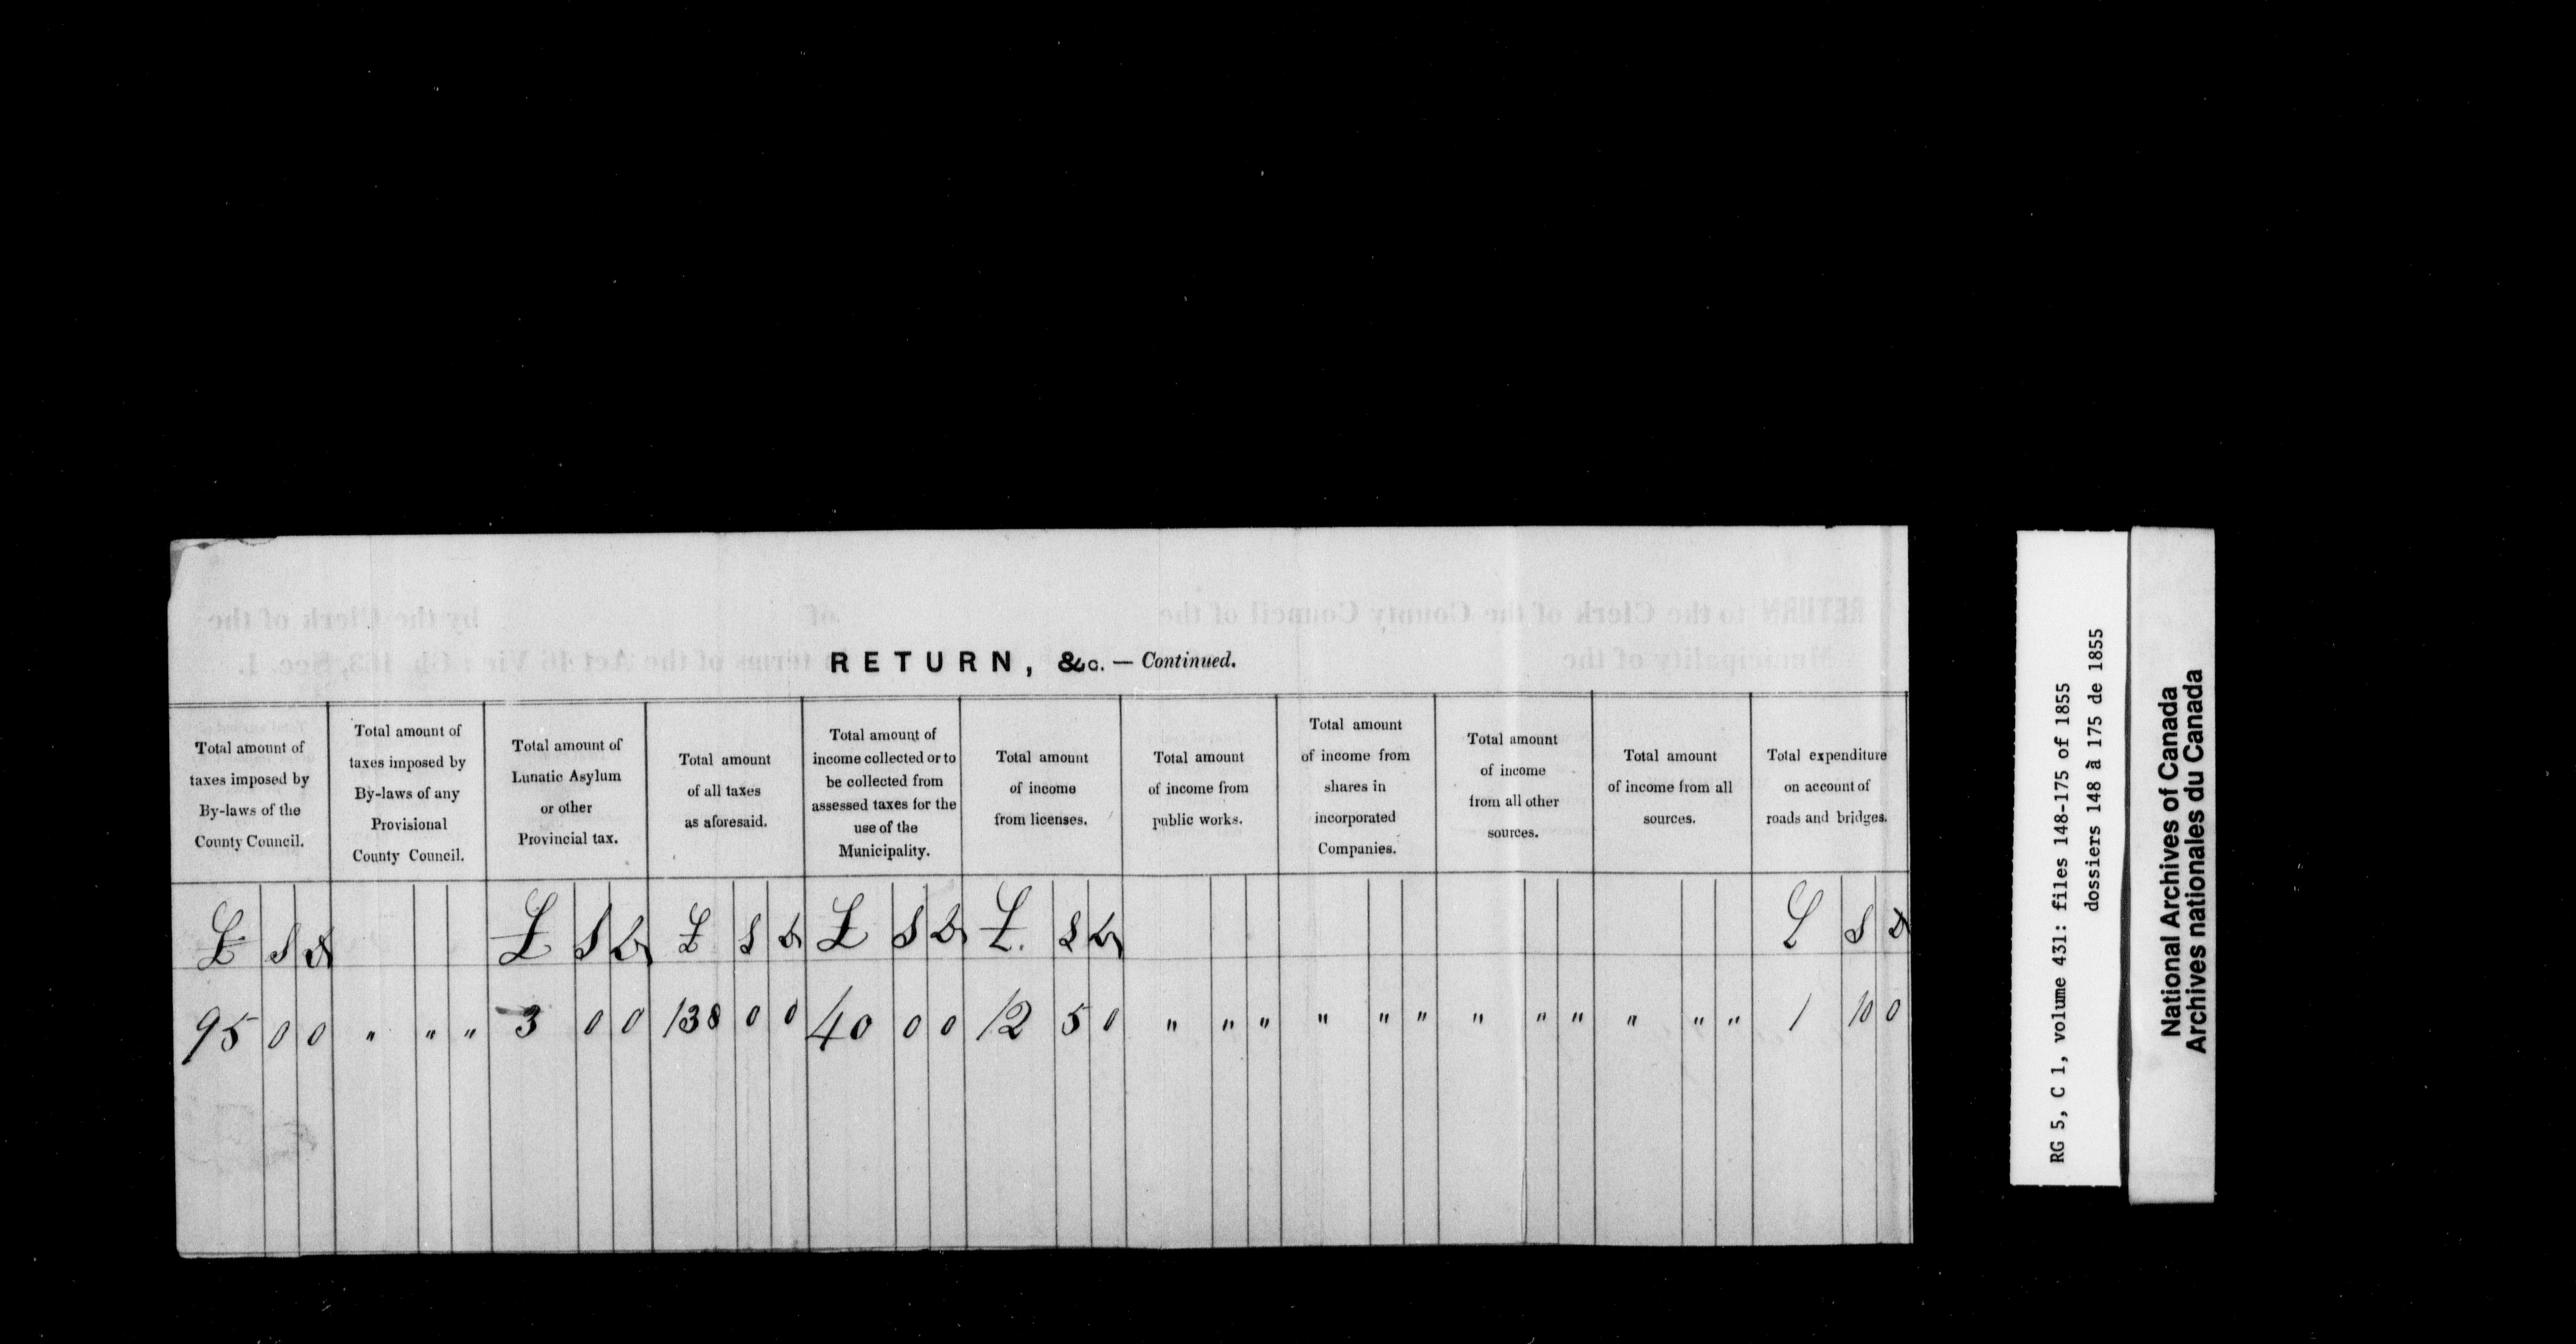 RETURN, &c. — Continued.
Total amount of
taxes imposed by
By-laws of the
County Council.
Total amount of
taxes imposed by
By-laws of any
Provisional
County Council.
Total amount of
Lunatic Asylum
or other
Provincial tax.
Total amount
of all taxes
as aforesaid.
Total amount of
income collected or to
be collected from
assessed taxes for the
use of the
Municipality.
Total amount
of income
from licenses.
Total amount
of income from
public works.
Total amount
of income from
shares in
incorporated
Companies.
Total amount
of income
from all other
sources.
Total amount
of income from all
sources.
Total expenditure
on account of
roads and bridges.
£ S D £ S D £ S D £ S D £. S D £ S D
95 0 0 " " " 3 0 0 138 0 0 40 0 0 12 5 0 " " " " " " " " " " " " 1 10 0
RG 5, C 1, volume 431: files 148-175 of 1855
dossiers 148 à 175 de 1855
National Archives of Canada
Archives nationales du Canada